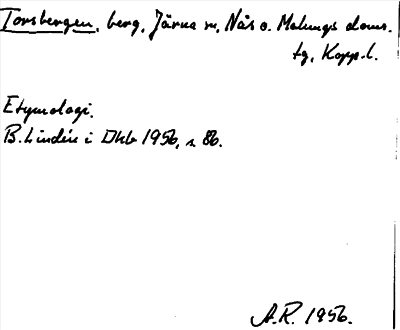 Torsbergen, berg, Järna sn, Nås o. Malungs doms.
tg, Kopp. l.
Etymologi.
B. Lindén i Dhb 1956, s. 86.
A.R. 1956.